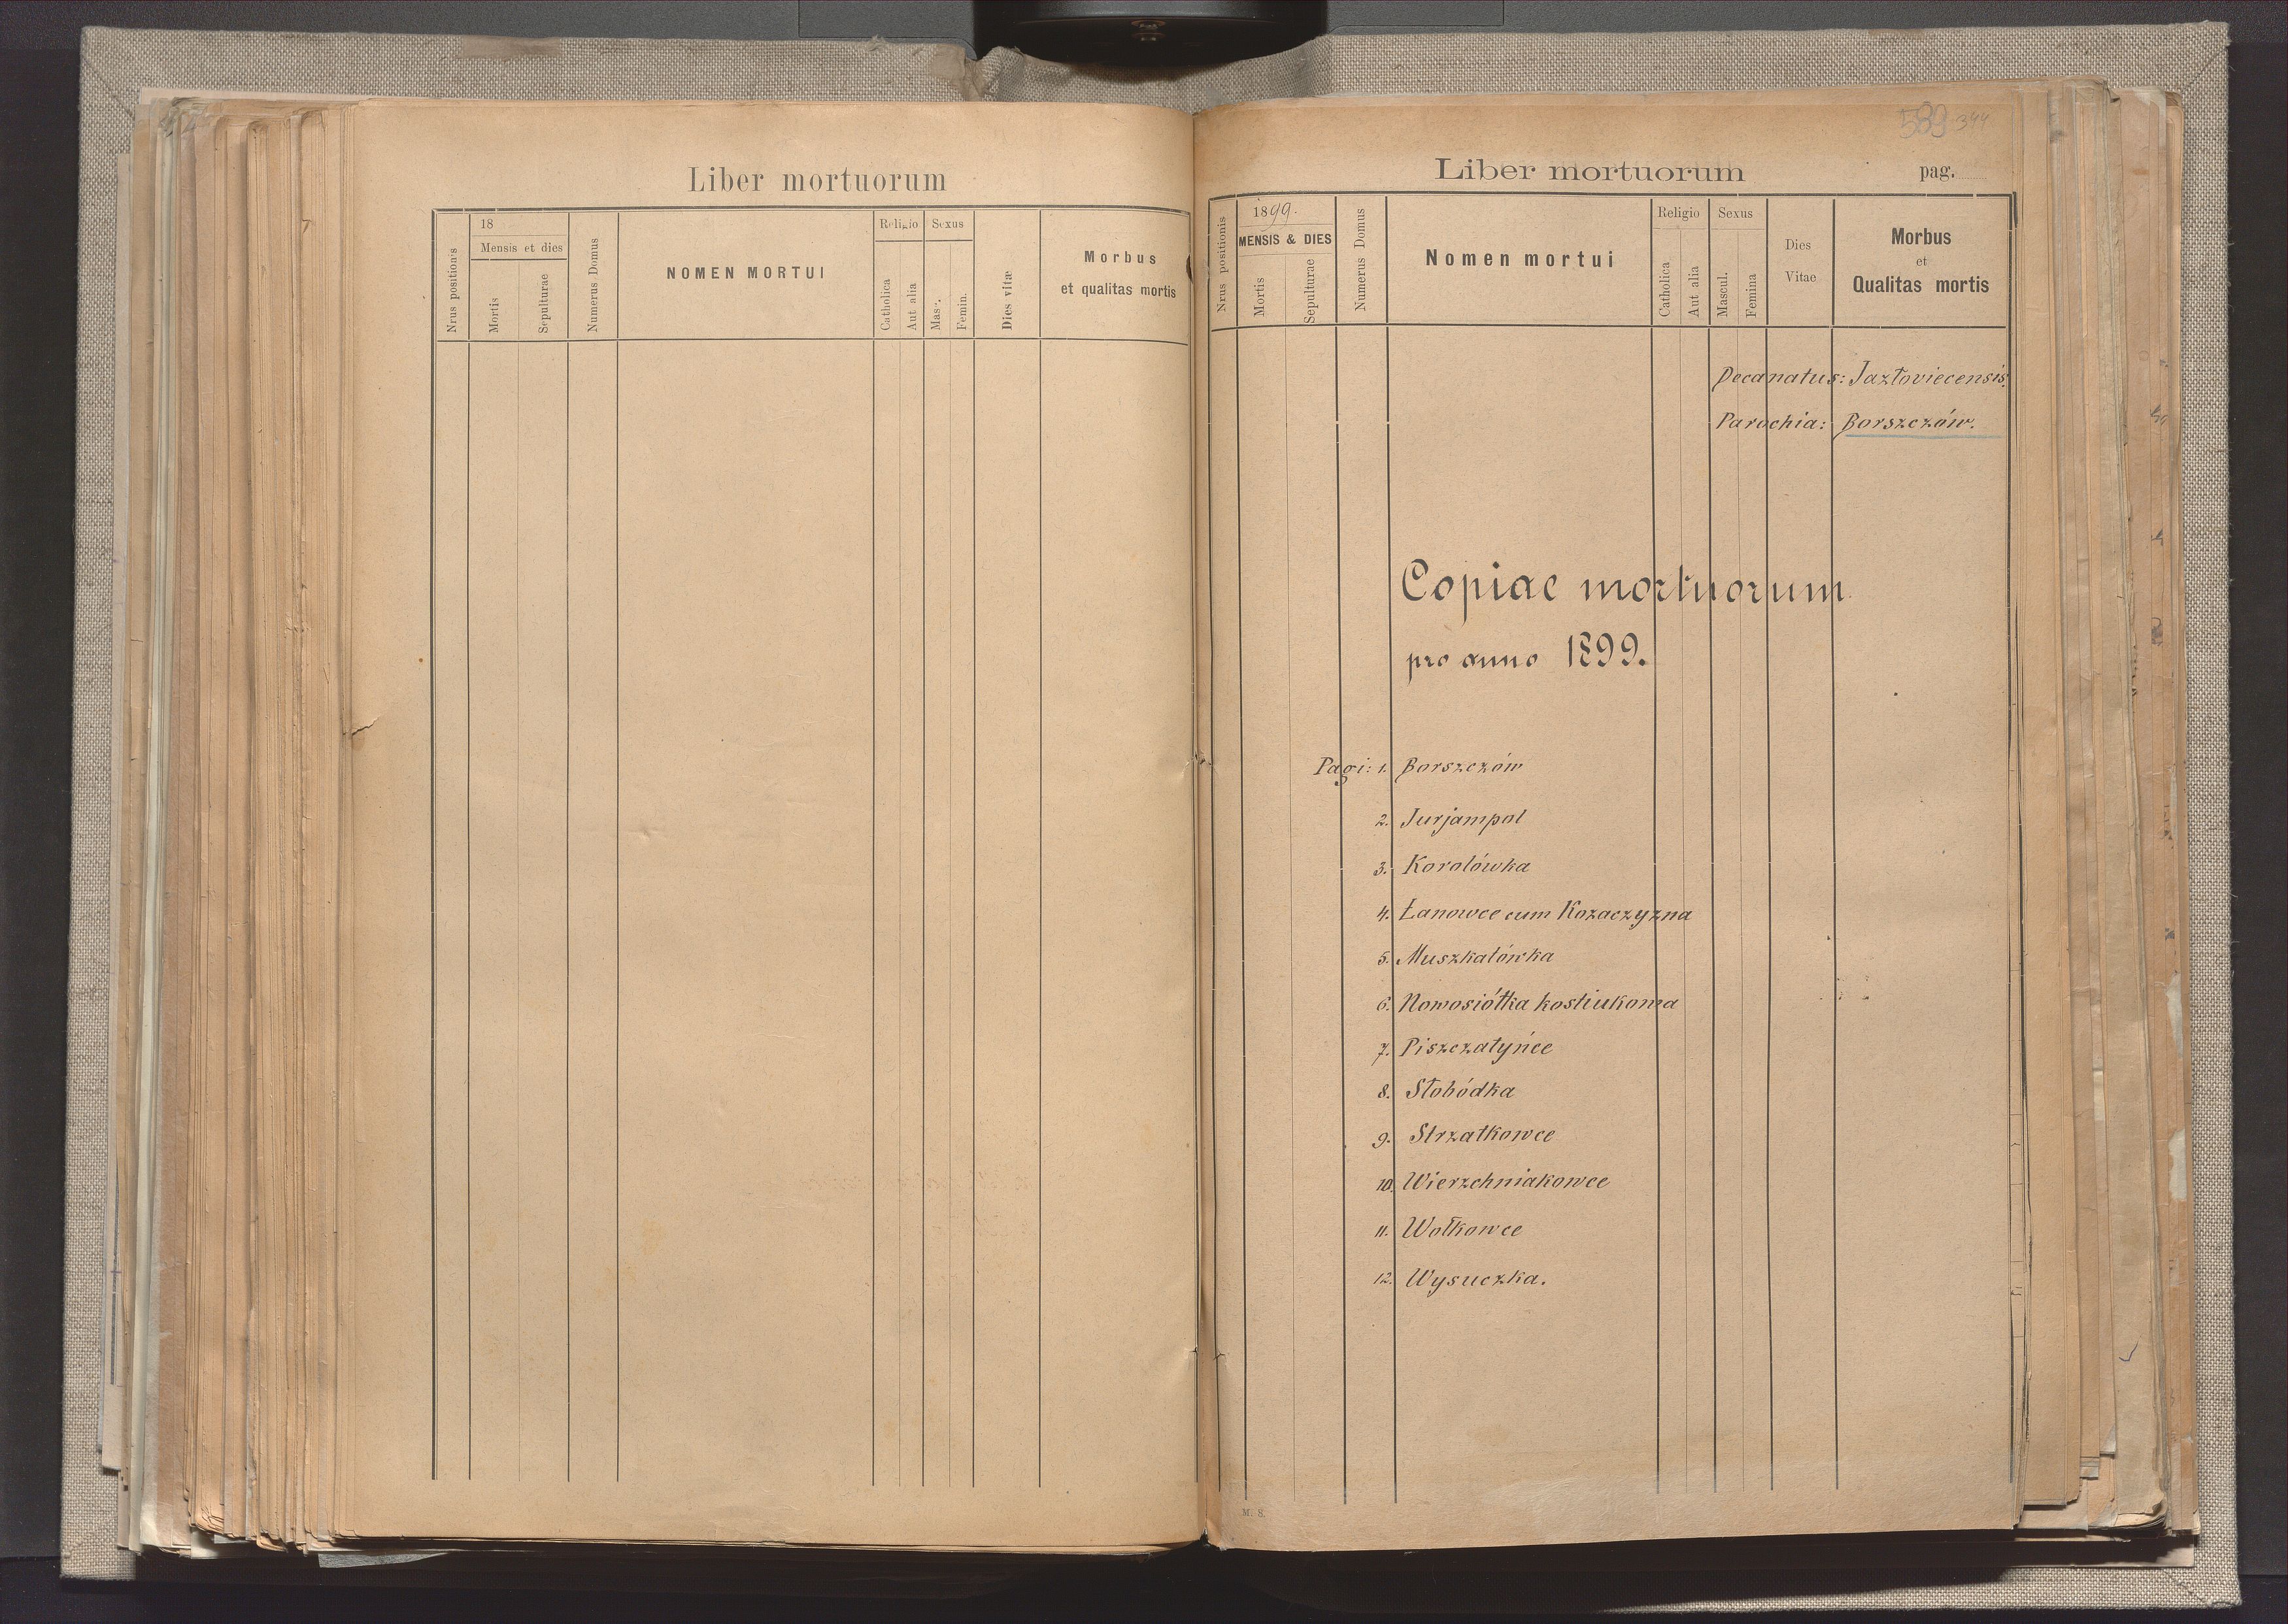 Liber mortuorum
Nrus positionis
18
Mensis et dies
Mortis
Sepulturae
Numerus Domus
NOMEN MORTUI
Religio
Catholica
Aut alia
Sexus
Masc.
Femin.
Dies vitæ
Morbus
et qualitas mortis
589 344
Liber mortuorum
pag.
Nrus positionis
1899.
MENSIS & DIES
Mortis
Sepulturae
Numerus Domus
Nomen mortui
Religio
Catholica
Aut alia
Sexus
Mascul.
Femina
Dies
Vitae
Morbus
et
Qualitas mortis
Decanatus: Jazłoviecensis.
Parochia: Borszczów.
Copiae mortuorum
pro anno 1899.
Pagi: 1. Borszczów
2. Jurjampol
3. Korolówka
4. Łanowce cum Kozaczyzna
5. Muszkatówka
6. Nowosiółka kostiukowa
7. Piszczatyńce
8. Słobódka
9. Strzałkowce
10. Wierzchniakowce
11. Wołkowce
12. Wysuczka.
M. 8.